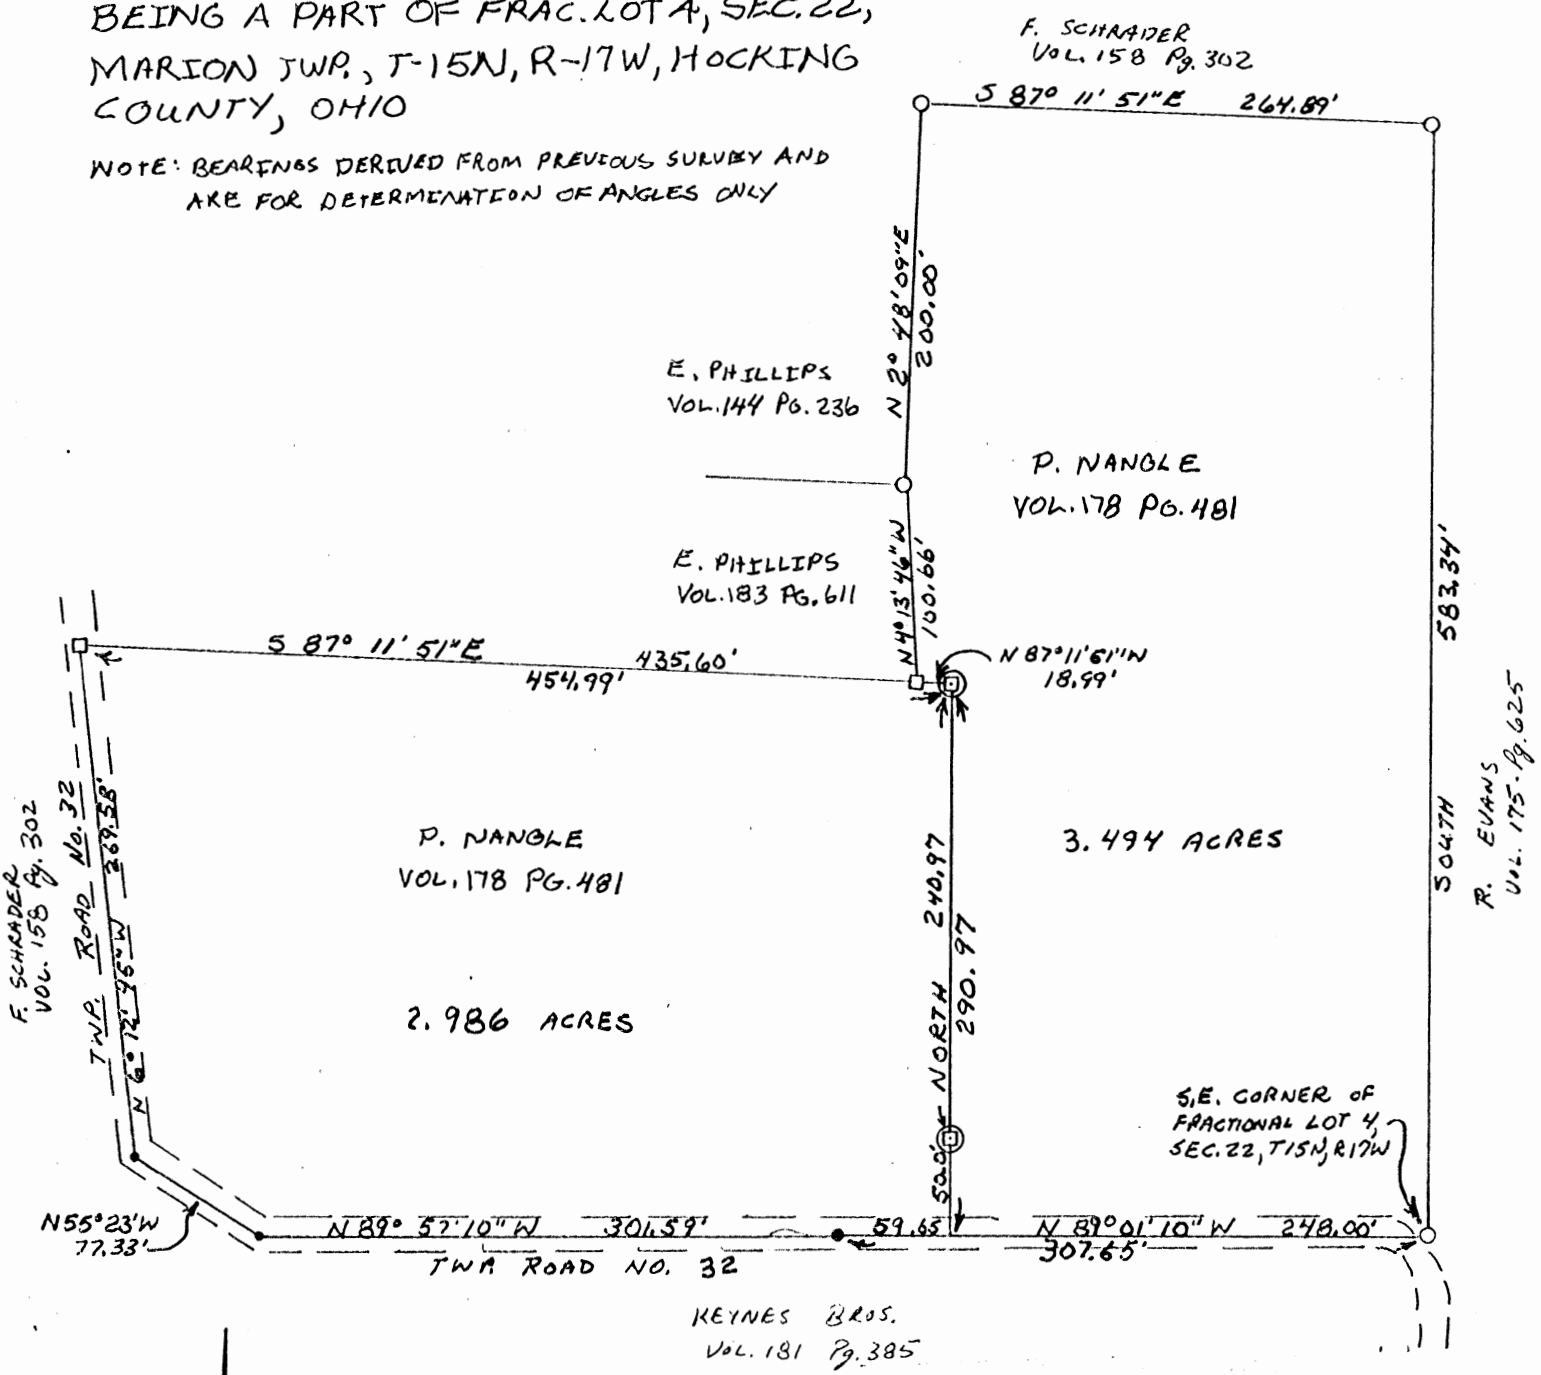 BEING A PART OF FRAC. LOT 4, SEC. 22,
MARION TWP., T-15N, R-17W, HOCKING
COUNTY, OHIO
NOTE: BEARINGS DERIVED FROM PREVIOUS SURVEY AND
ARE FOR DETERMINATION OF ANGLES ONLY
F. SCHRADER
VOL. 158 Pg. 302
S 87° 11' 51" E 264.89'
N 2° 48' 09" E
200.00'
E. PHILLIPS
VOL. 144 PG. 236
P. NANGLE
VOL. 178 PG. 481
E. PHILLIPS
VOL. 183 PG. 611
N 4° 13' 46" W
100.66'
583.34'
SOUTH
S 87° 11' 51" E 435.60'
454.99'
N 87° 11' 51" W
18.99'
R. EVANS
VOL. 175 - Pg. 625
F. SCHRADER
VOL. 158 Pg. 302
TWP. ROAD No. 32
N 6° 12' 45" W 269.58'
P. NANGLE
VOL. 178 PG. 481
2.986 ACRES
3.494 ACRES
NORTH 240.97
290.97
50.0'
S.E. CORNER OF
FRACTIONAL LOT 4,
SEC. 22, T15N, R17W
N 55° 23' W
77.33'
N 89° 57' 10" W 301.59'
59.65
N 89° 01' 10" W 248.00'
307.65'
TWP. ROAD NO. 32
KEYNES BROS.
VOL. 181 Pg. 385